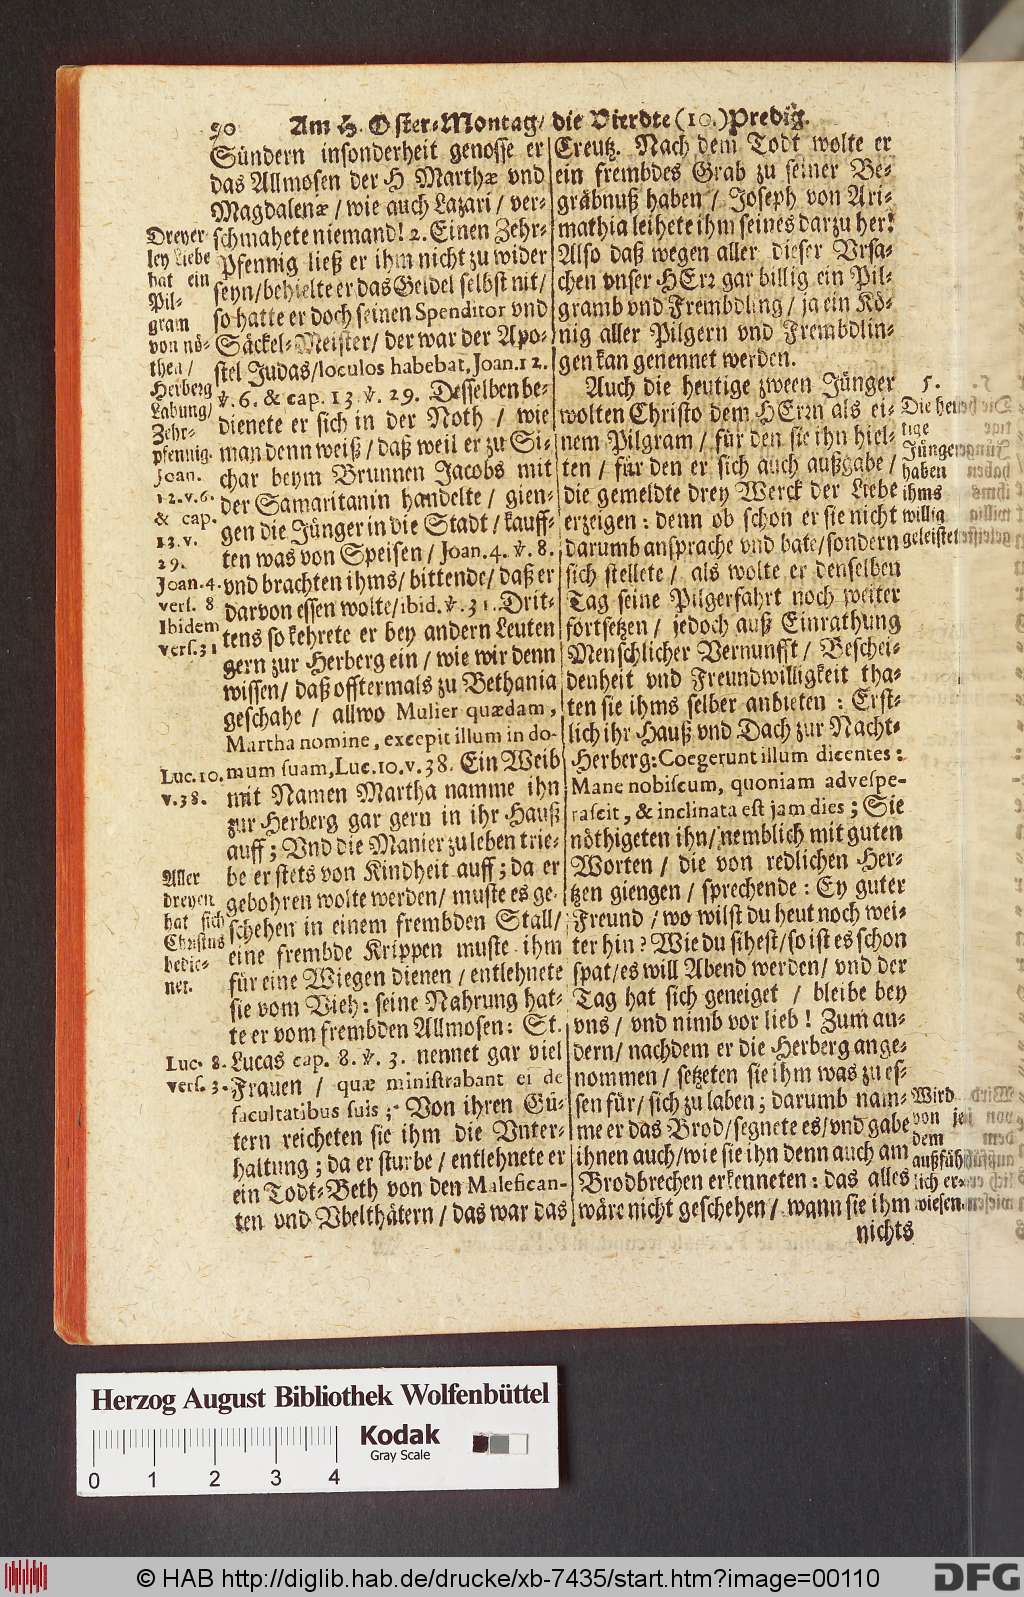 90 Am H. Oster-Montag/ die Vierdte (10.) Predig.
Sündern insonderheit genosse er
das Allmosen der H Marthæ vnd
Magdalenæ / wie auch Lazari / ver-
schmahete niemand! 2. Einen Zehr-
Pfennig ließ er ihm nicht zu wider
seyn/ behielte er das Geldel selbst nit/
so hatte er doch seinen Spenditor vnd
Säckel-Meister/ der war der Apo-
stel Judas/ loculos habebat, Joan. 12.
℣. 6. & cap. 13 ℣. 29. Desselben be-
dienete er sich in der Noth / wie
man denn weiß / daß weil er zu Si-
char beym Brunnen Jacobs mit
der Samaritanin handelte / gien-
gen die Jünger in die Stadt / kauff-
ten was von Speisen / Joan. 4. ℣. 8.
vnd brachten ihms/ bittende/ daß er
darvon essen wolte/ ibid. ℣. 31. Drit-
tens so kehrete er bey andern Leuten
gern zur Herberg ein / wie wir denn
wissen/ daß offtermals zu Bethania
geschahe / allwo Mulier quædam,
Martha nomine, excepit illum in do-
mum suam, Luc. 10. v. 38. Ein Weib
mit Namen Martha namme ihn
zur Herberg gar gern in ihr Hauß
auff; Vnd die Manier zu leben trie-
be er stets von Kindheit auff; da er
gebohren wolte werden/ muste es ge-
schehen in einem frembden Stall/
eine frembde Krippen muste ihm
für eine Wiegen dienen / entlehnete
sie vom Vieh: seine Nahrung hat-
te er vom frembden Allmosen: St.
Lucas cap. 8. ℣. 3. nennet gar viel
Frauen / quæ ministrabant ei de
facultatibus suis; Von ihren Gü-
tern reicheten sie ihm die Vnter-
haltung; da er sturbe / entlehnete er
ein Todt-Beth von den Malefican-
ten vnd Vbelthätern / das war das
Dreyer-
ley Liebe
hat ein
Pil-
gram
von nö-
then /
Herberg
Labung/
Zehr-
pfennig.
Joan.
12. v. 6.
& cap.
13. v.
29.
Joan. 4.
vers. 8
Ibidem
vers. 31
Luc. 10.
v. 38.
Aller
dreyen
hat sich
Christus
bedie-
net.
Luc. 8.
vers. 3.
Creutz. Nach dem Todt wolte er
ein frembdes Grab zu seiner Be-
gräbnuß haben / Joseph von Ari-
mathia leihete ihm seines darzu her!
Also daß wegen aller dieser Vrsa-
chen vnser HErr gar billig ein Pil-
gramb vnd Frembdling / ja ein Kö-
nig aller Pilgern vnd Frembdlin-
gen kan genennet werden.
Auch die heutige zween Jünger
wolten Christo dem HErrn als ei-
nem Pilgram / für den sie ihn hiel-
ten / für den er sich auch außgabe /
die gemeldte drey Werck der Liebe
erzeigen: denn ob schon er sie nicht
darumb ansprache vnd bate/ sondern
sich stellete / als wolte er denselben
Tag seine Pilgerfahrt noch weiter
fortsetzen / jedoch auß Einrathung
Menschlicher Vernunfft / Beschei-
denheit vnd Freundwilligkeit tha-
ten sie ihms selber anbieten: Erst-
lich ihr Hauß vnd Dach zur Nacht-
Herberg: Coegerunt illum dicentes:
Mane nobiscum, quoniam advespe-
rascit, & inclinata est jam dies; Sie
nöthigeten ihn/ nemblich mit guten
Worten / die von redlichen Her-
tzen giengen / sprechende: Ey guter
Freund / wo wilst du heut noch wei-
ter hin? Wie du sihest/ so ist es schon
spat/ es will Abend werden/ vnd der
Tag hat sich geneiget / bleibe bey
vns / vnd nimb vor lieb! Zum an-
dern/ nachdem er die Herberg ange-
nommen / setzeten sie ihm was zu es-
sen für/ sich zu laben; darumb nam-
me er das Brod/ segnete es/ vnd gabe
ihnen auch/ wie sie ihn denn auch am
Brodbrechen erkenneten: das alles
wäre nicht geschehen / wann sie ihm
nichts
5.
Die heu-
tige
Jünger
haben
ihms
willig
geleistet
Wird
von je
dem
außfüh
lich er-
wiesen.
Herzog August Bibliothek Wolfenbüttel
Kodak
Gray Scale
0 1 2 3 4
© HAB http://diglib.hab.de/drucke/xb-7435/start.htm?image=00110
DFG